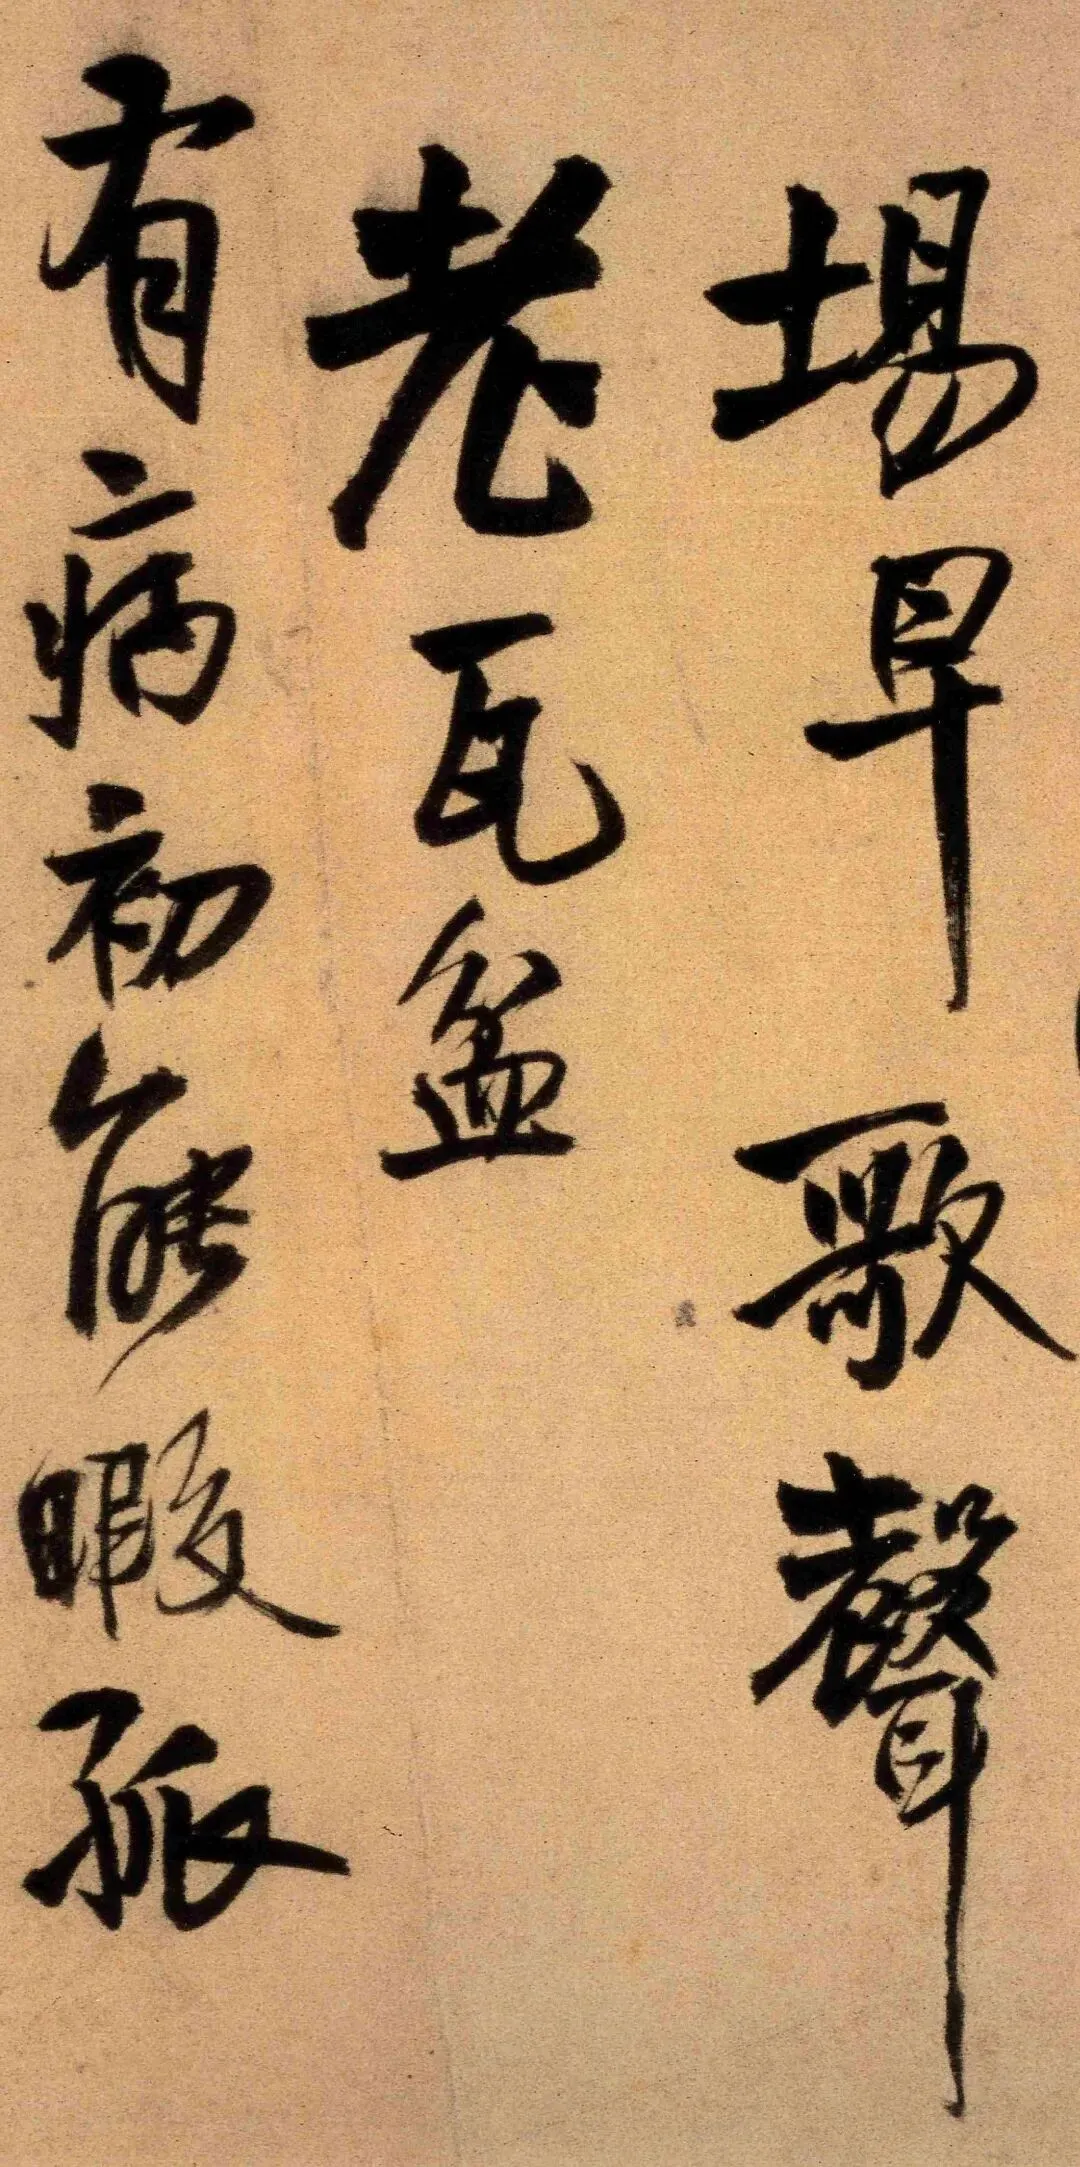 場早歌聲
老瓦盆
有病初能暇孤